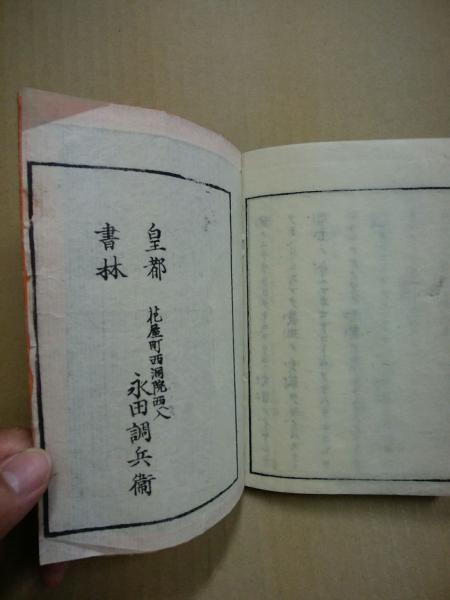 皇都
書林
花屋町西洞院西入
永田調兵衞